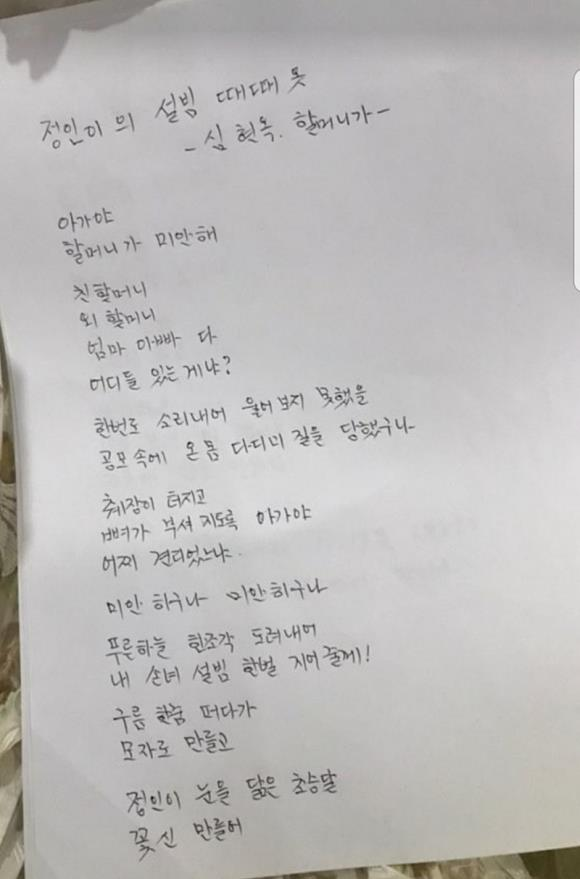 정인이의 설빔 때때옷
- 심현옥. 할머니가-
아가야
할머니가 미안해
친할머니
외할머니
엄마 아빠 다
어디들 있는게냐?
한번도 소리내어 울어 보지 못했을
공포 속에 온 몸 다디미 질을 당했구나
췌장이 터지고
뼈가 부셔 지도록 아가야
어찌 견디었느냐.
미안 하구나 미안 하구나
푸른하늘 한조각 도려내어
내 손녀 설빔 한벌 지어줄께!
구름 한줌 떠다가
모자로 만들고
정인이 눈을 닮은 초승달
꽃신 만들어